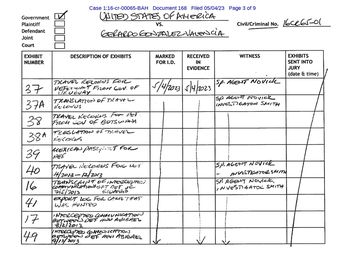 Case 1:16-cr-00065-BAH Document 168 Filed 05/04/23 Page 3 of 9
Government
Plaintiff
Defendant
Joint
Court
UNITED STATES OF AMERICA
VS.
GERARDO GONZALEZ-VALENCIA
Civil/Criminal No. 16CR65-01
EXHIBIT NUMBER DESCRIPTION OF EXHIBITS MARKED FOR I.D. RECEIVED IN EVIDENCE WITNESS EXHIBITS SENT INTO JURY (date & time)
37 TRAVEL RECORDS FOR 5/4/2023 5/4/2023 SP AGENT NOVICK
FROM GOV OF
URUGUAY
37A TRANSLATION OF TRAVEL RECORDS SP AGENT NOVICK INVESTIGATOR SMITH
38 TRAVEL RECORDS FOR
FROM GOV OF BOTSWANA
38A TRANSLATION OF TRAVEL RECORDS
39 MEXICAN PASSPORT FOR
40 TRAVEL RECORDS FOR SP AGENT NOVICK
INVESTIGATOR SMITH
16 TRANSCRIPT OF INTERCEPTED SP AGENT NOVICK,
INVESTIGATOR SMITH
41 EXPORT LOG FOR CHATS THAT
17 INTERCEPTED COMMUNICATION
BETWEEN DEF AND
49 INTERCEPTED COMMUNICATION
BETWEEN DEF AND